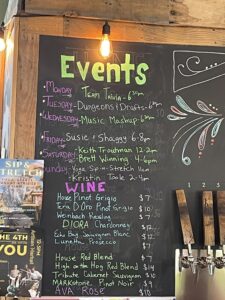 Events
MONDAY Team Trivia - 6:30pm
TUESDAY - Dungeons & Drafts - 6pm
WEDNESDAY - Music Mashup 6-9pm
FRIDAY Susie & Shaggy 6-8pm
SATURDAY - Keith Troutman 12-2pm
- Brett Winning 4-6pm
SUNDAY Yoga Sip-n-Stretch 11am
- Kristin Toole 2-4pm
WINE
House Pinot Grigio $7
Pinot Grigio
Weinbach Riesling $7
DIORA Chardonnay $12
Sauvignon Blanc
Prosecco
House Red Blend $7
High on the Hog Red Blend $14
Tribute Cabernet Sauvignon $10
Pinot Noir $9
AVA Rosé $10
SIP &
STRETCH
THE 4TH
YOU
1 2 3